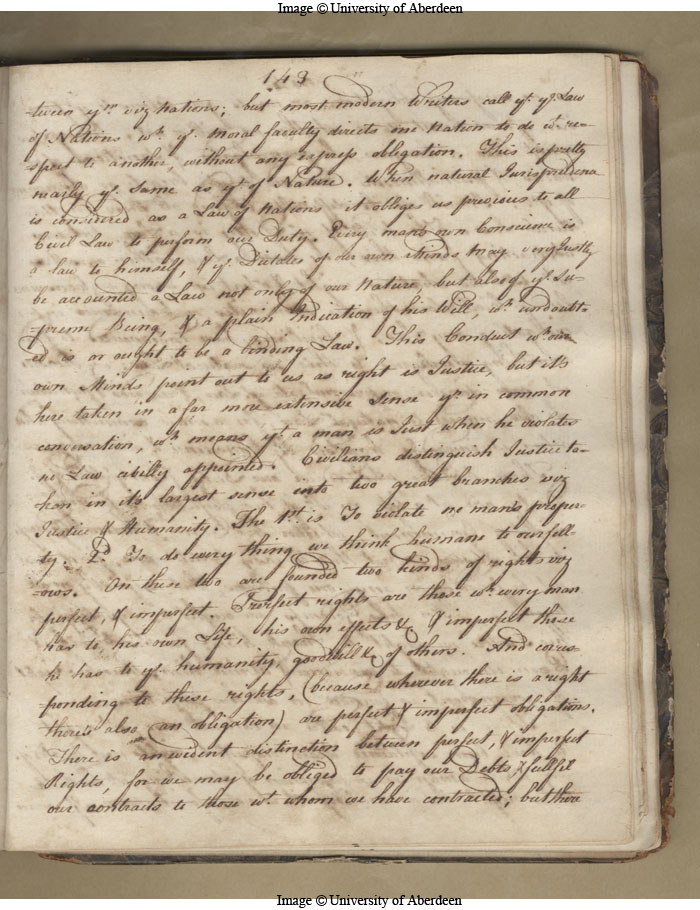 Image © University of Aberdeen
143
-tween ym. viz Nations; but most modern Writers call yt. ye. Law
of Nations wh. ye. Moral faculty directs one Nation to do wt. re-
spect to another, without any express obligation. This is pretty
nearly ye. same as yt. of Nature. When natural Jurisprudence
is considered as a Law of Nations it obliges us previous to all
Civil Law to perform our Duty. Every man's own Conscience is
a law to himself, & ye. Dictates of our own Minds may very justly
be accounted a Law not only of our Nature, but also of ye. Su-
-preme Being, & a plain Indication of his Will, wh. undoubt-
ed is or ought to be a binding Law. This Conduct wh. our
own Minds point out to us as right is Justice, but it's
here taken in a far more extensive sense yn. in common
conversation, wh. means yt. a man is Just when he violates
no Law civilly appointed. Civilians distinguish Justice ta-
-ken in its largest sense into two great branches viz
Justice & Humanity. The 1st. is To violate no man's proper-
ty. 2d. To do every thing we think humane to our fell-
-ows. On these two are founded two kinds of rights viz
perfect, & imperfect. Perfect rights are those wh. every man
has to his own Life, his own effects &c, & imperfect those
he has to ye. humanity, goodwill &c of others. And corres-
-ponding to these rights, (because wherever there is a right
there's also an obligation) are perfect & imperfect obligations.
There is an evident distinction between perfect, & imperfect
Rights, for we may be obliged to pay our Debts & fullfil
our contracts to those wt. whom we have contracted; but there
Image © University of Aberdeen